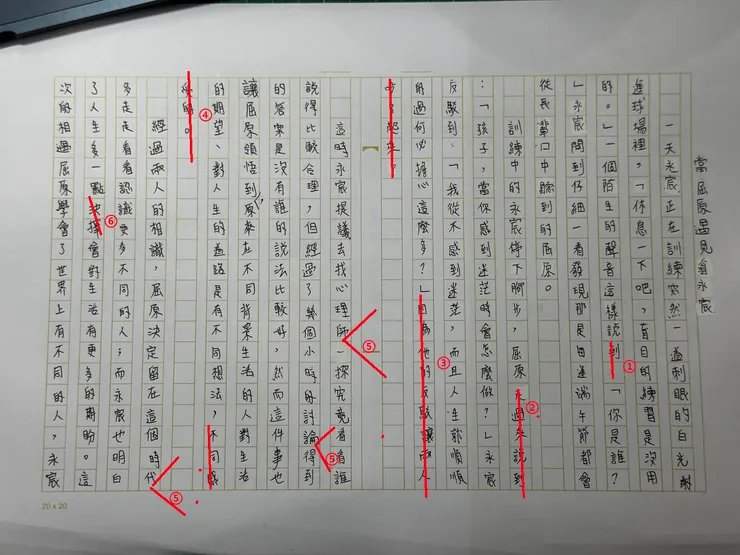 當屈原遇見翁永宸
一天永宸正在訓練突然一道刺眼的白光射
進球場裡，「休息一下吧，盲目的練習是沒用
的。」一個陌生的聲音這樣說到「你是誰？
」永宸問到仔細一看發現那是每逢端午節都會
從長輩口中聽到的屈原。
訓練中的永宸停下腳步，屈原走過來說到
：「孩子，當你感到迷茫時會怎麼做？」永宸
反駁到：「我從不感到迷茫，而且人生都順順
的過何必擔心這麼多？」因為他的反駁讓兩人
吵了起來。
這時永宸提議去找心理師一探究竟看看誰
說得比較合理，但經過了幾個小時的討論得到
的答案是沒有誰的說法比較好，然而這件事也
讓屈原領悟到，原來在不同背景生活的人對生活
的期望、對人生的道路是有不同想法，不同感
受的。
經過兩人的相識，屈原決定留在這個時代
多走走看看認識更多不同的人；而永宸也明白
了人生多一點抉擇會對生活有更多的期盼。這
次的相遇屈原學會了世界上有不同的人，永宸
①
②
③
④
⑤
⑤
⑤
⑥
20 x 20